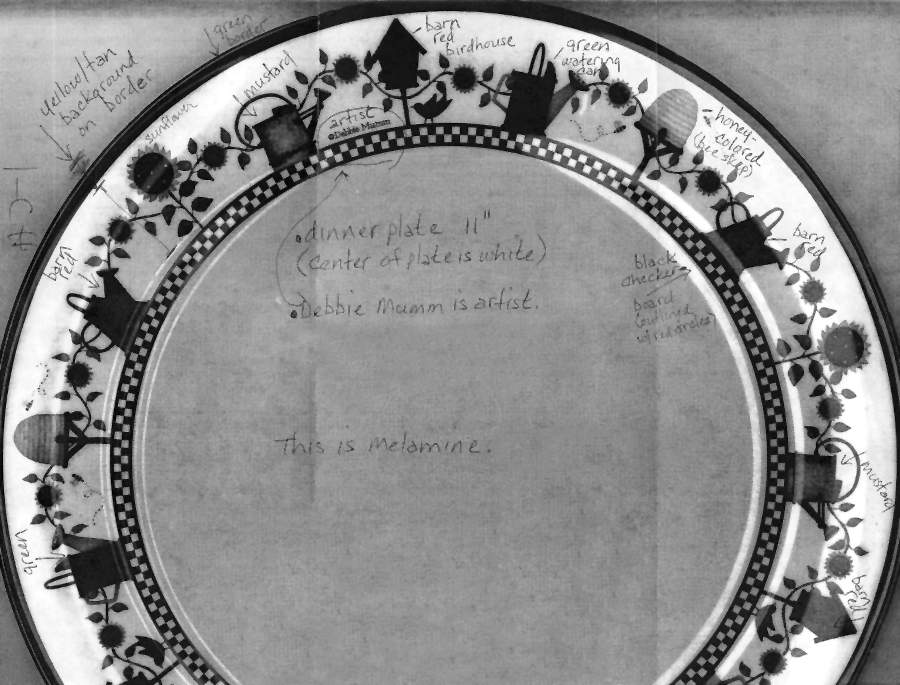 green
border
barn
red
birdhouse
green
watering
can
mustard
yellow/tan
background
on
border
sunflower
artist
©Debbie Mumm
honey-
colored
(bee skep)
barn
red
• dinner plate 11"
(center of plate is white)
• Debbie Mumm is artist.
black
checker-
board
(outlined
w/ red circles)
barn
red
This is Melamine.
mustard
green
barn
red